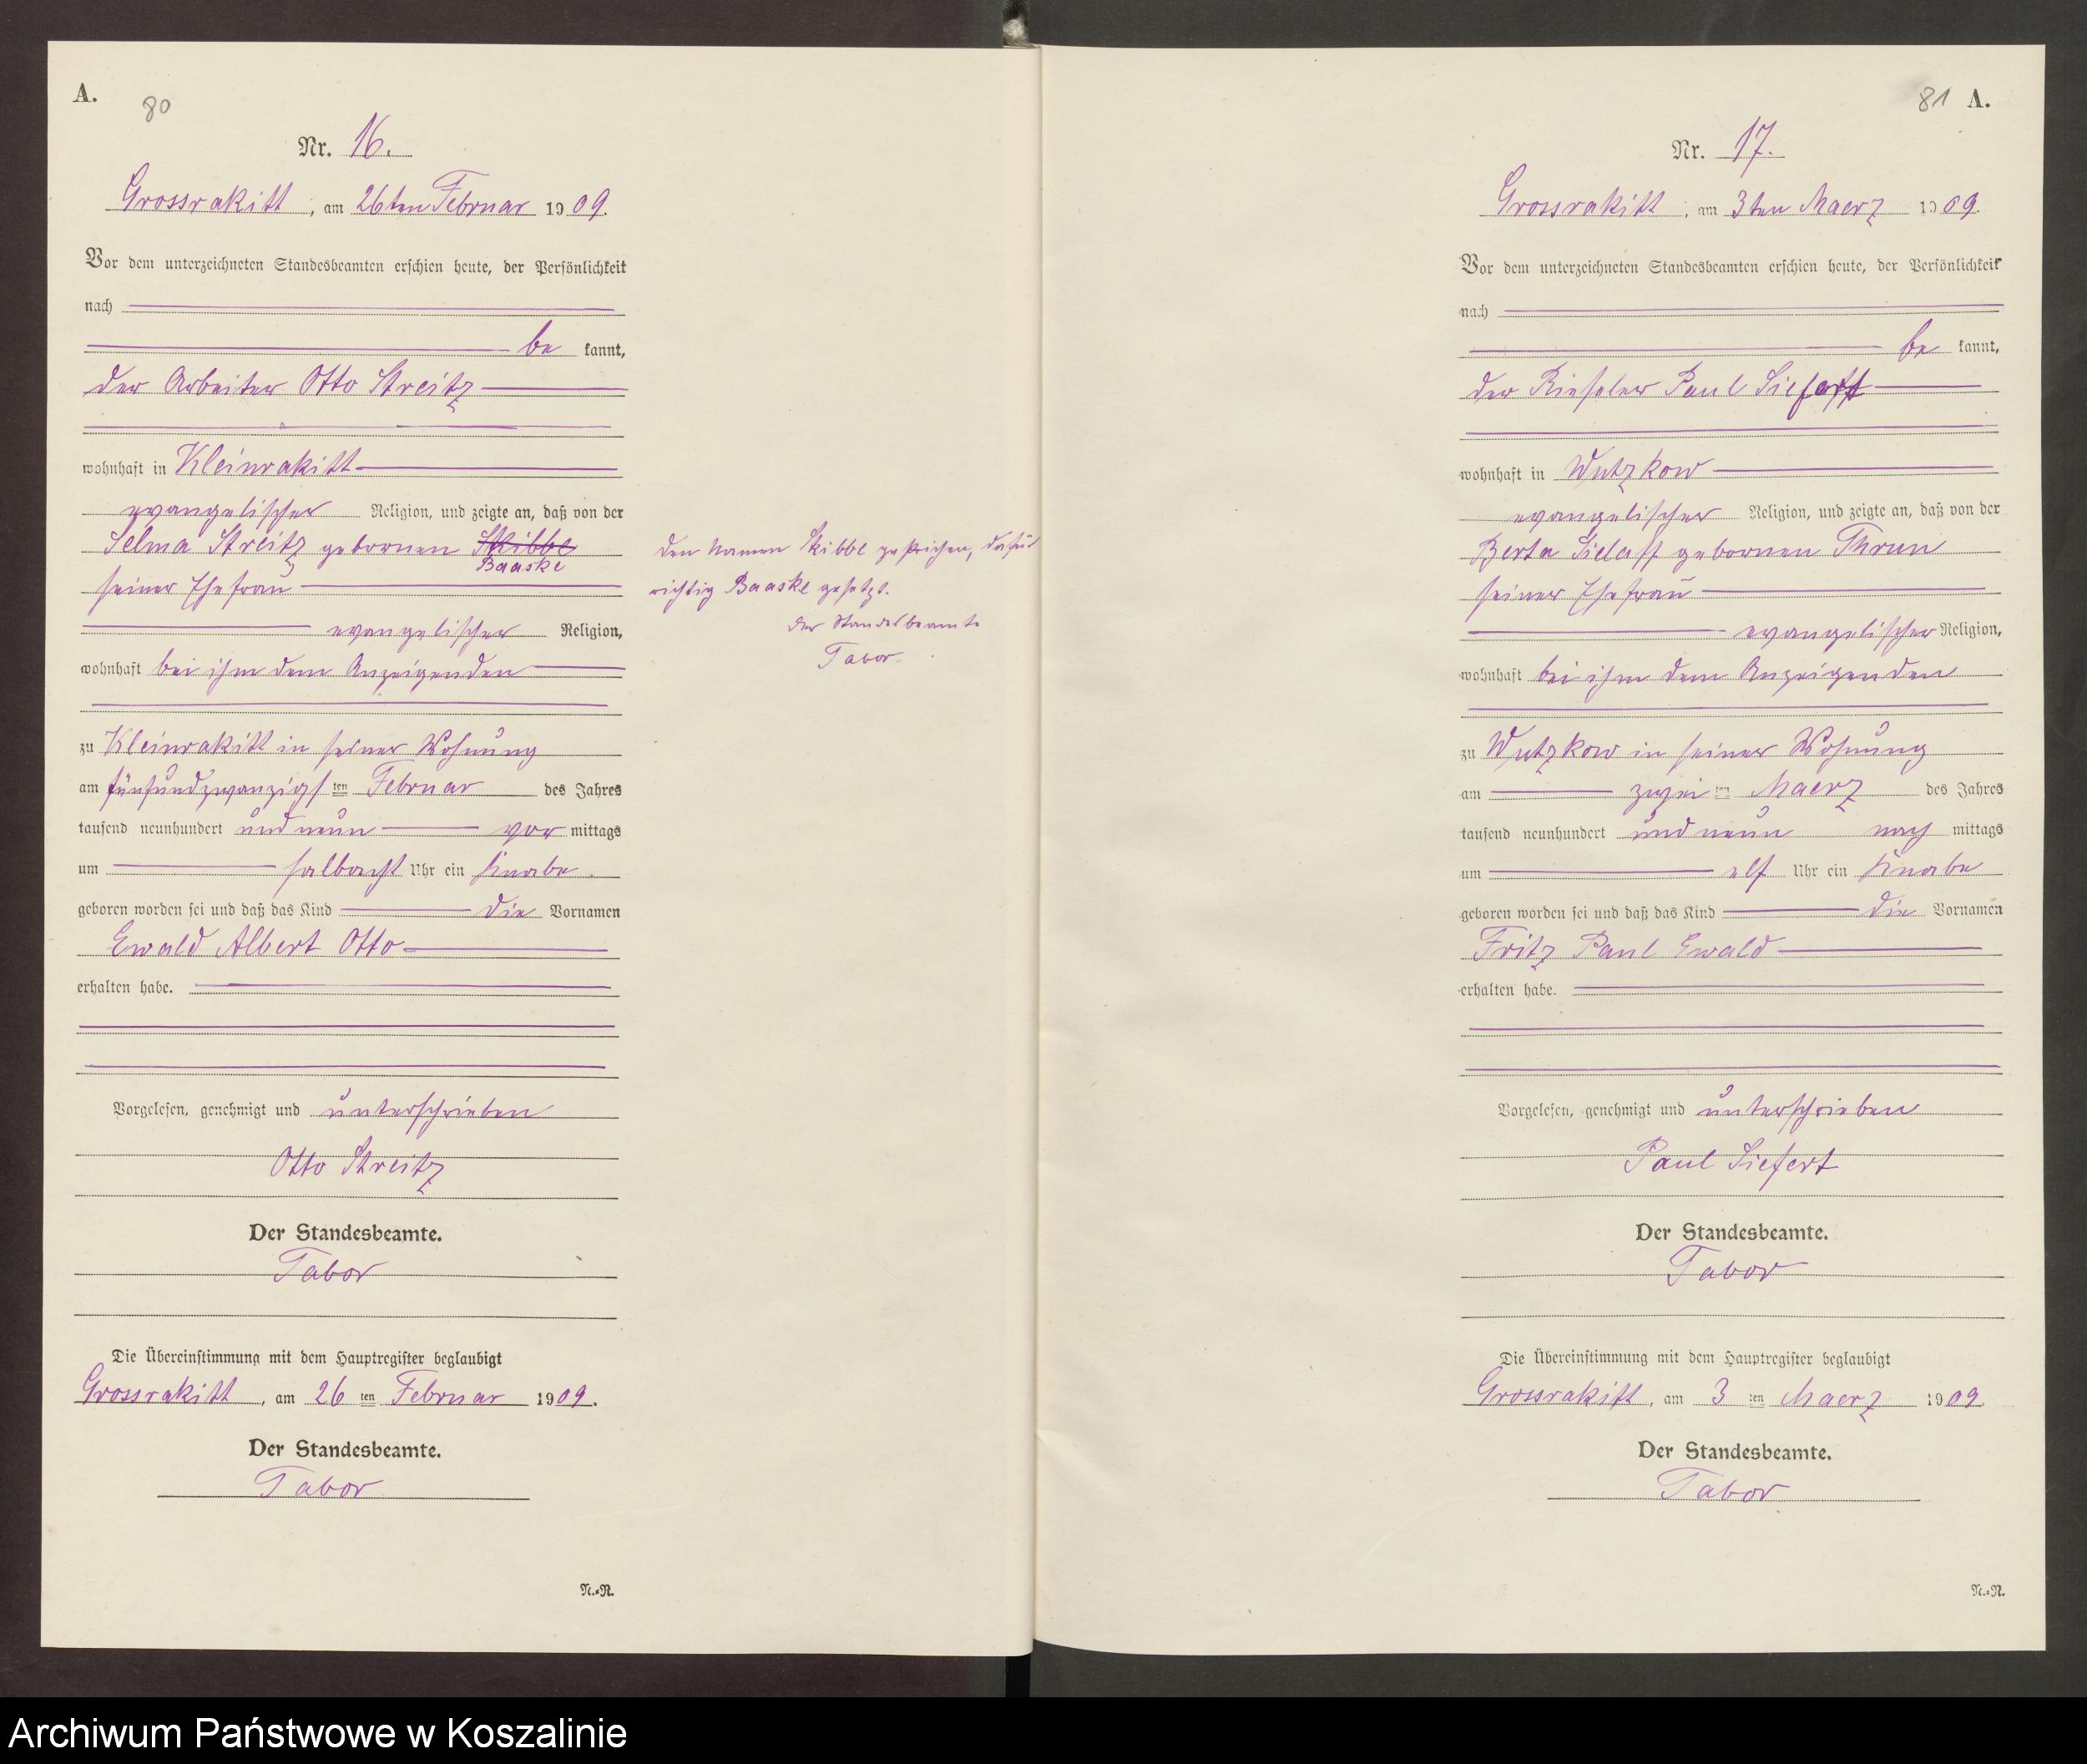 A.
80
Nr. 16.
Grossrakitt, am 26ten Februar 1909.
Vor dem unterzeichneten Standesbeamten erschien heute, der Persönlichkeit
nach
be kannt,
der Arbeiter Otto Streitz
wohnhaft in Kleinrakitt
evangelischer Religion, und zeigte an, daß von der
Selma Streitz gebornen Skibbe
Baaske
seiner Ehefrau
evangelischer Religion,
wohnhaft bei ihm dem Anzeigenden
zu Kleinrakitt in seiner Wohnung
am fünfundzwanzigsten Februar des Jahres
tausend neunhundert und neun vor mittags
um halbacht Uhr ein Knabe
geboren worden sei und daß das Kind die Vornamen
Ewald Albert Otto
erhalten habe.
Vorgelesen, genehmigt und unterschrieben
Otto Streitz
Der Standesbeamte.
Tabor
Die Übereinstimmung mit dem Hauptregister beglaubigt
Grossrakitt, am 26 ten Februar 1909.
Der Standesbeamte.
Tabor
N.=R.
Den Namen Skibbe gestrichen, dafür
richtig Baaske gesetzt.
Der Standesbeamte
Tabor.
81 A.
Nr. 17.
Grossrakitt, am 3ten Maerz 1909.
Vor dem unterzeichneten Standesbeamten erschien heute, der Persönlichkeit
nach
be kannt,
der Rieseler Paul
wohnhaft in Wutzkow
evangelischer Religion, und zeigte an, daß von der
Berta Sielaff gebornen Thrun
seiner Ehefrau
evangelischer Religion,
wohnhaft bei ihm dem Anzeigenden
zu Wutzkow in seiner Wohnung
am zwei ten Maerz des Jahres
tausend neunhundert und neun nach mittags
um elf Uhr ein Knabe
geboren worden sei und daß das Kind die Vornamen
Fritz Paul Ewald
erhalten habe.
Vorgelesen, genehmigt und unterschrieben
Paul Siefert
Der Standesbeamte.
Tabor
Die Übereinstimmung mit dem Hauptregister beglaubigt
Grossrakitt, am 3 ten Maerz 1909.
Der Standesbeamte.
Tabor
N.=R.
Archiwum Państwowe w Koszalinie